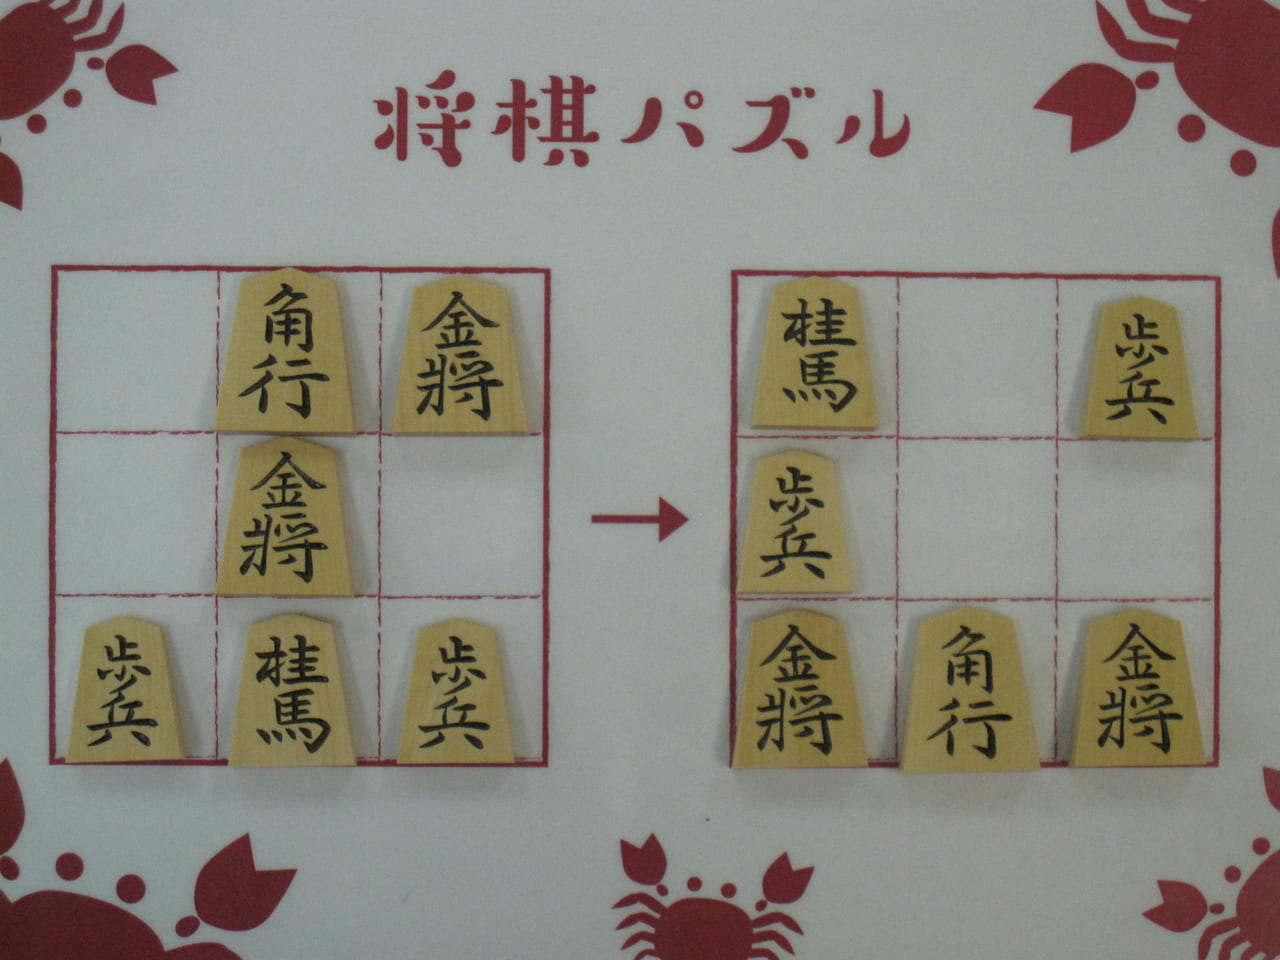 将棋パズル
角行 金将 桂馬 歩兵
金将 歩兵
歩兵 桂馬 歩兵 金将 角行 金将